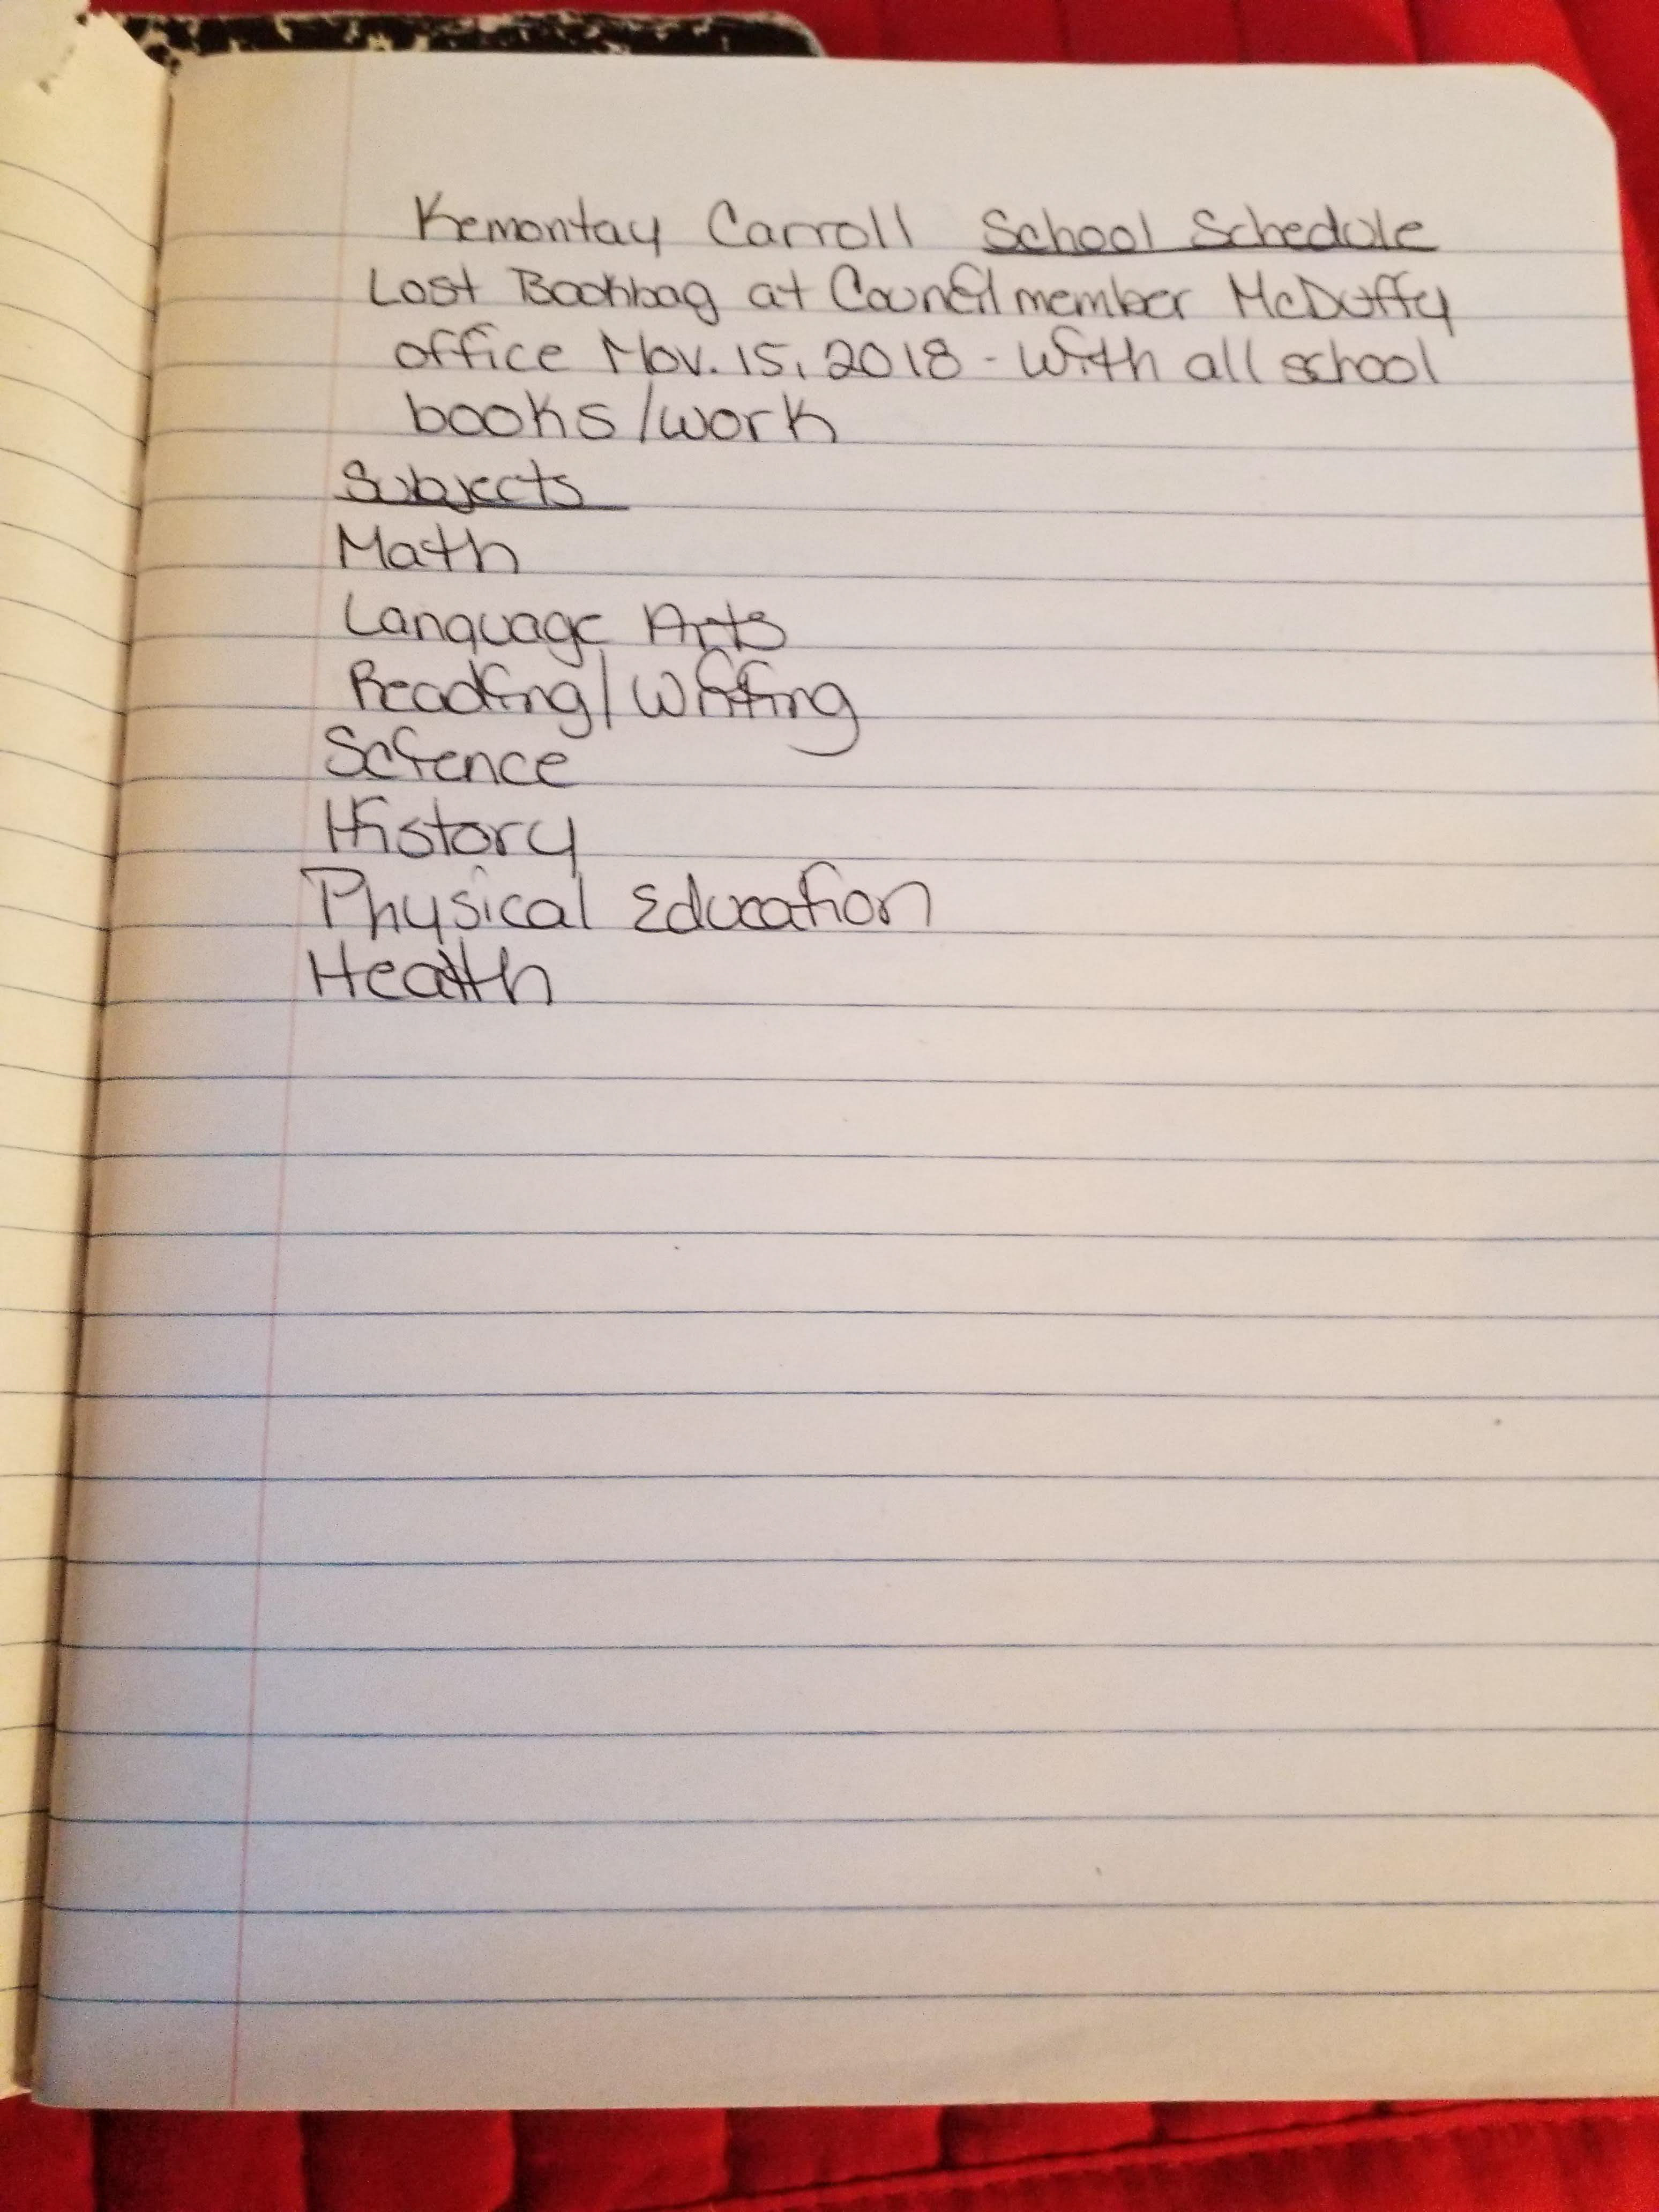 Kemontay Carroll School Schedule
Lost Bookbag at Councilmember McDuffy
office Nov. 15, 2018 - With all school
books/work
Subjects
Math
Language Arts
Reading/Writing
Science
History
Physical Education
Health